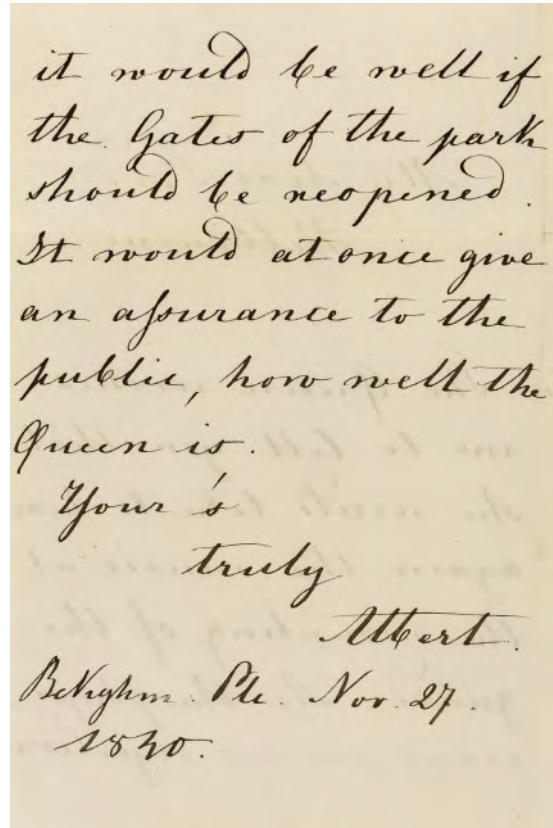 it would be well if
the Gates of the park
should be reopened.
It would at once give
an assurance to the
public, how well the
Queen is.
Your's
truly
Albert.
Bckghm. Plc. Nov. 27.
1840.